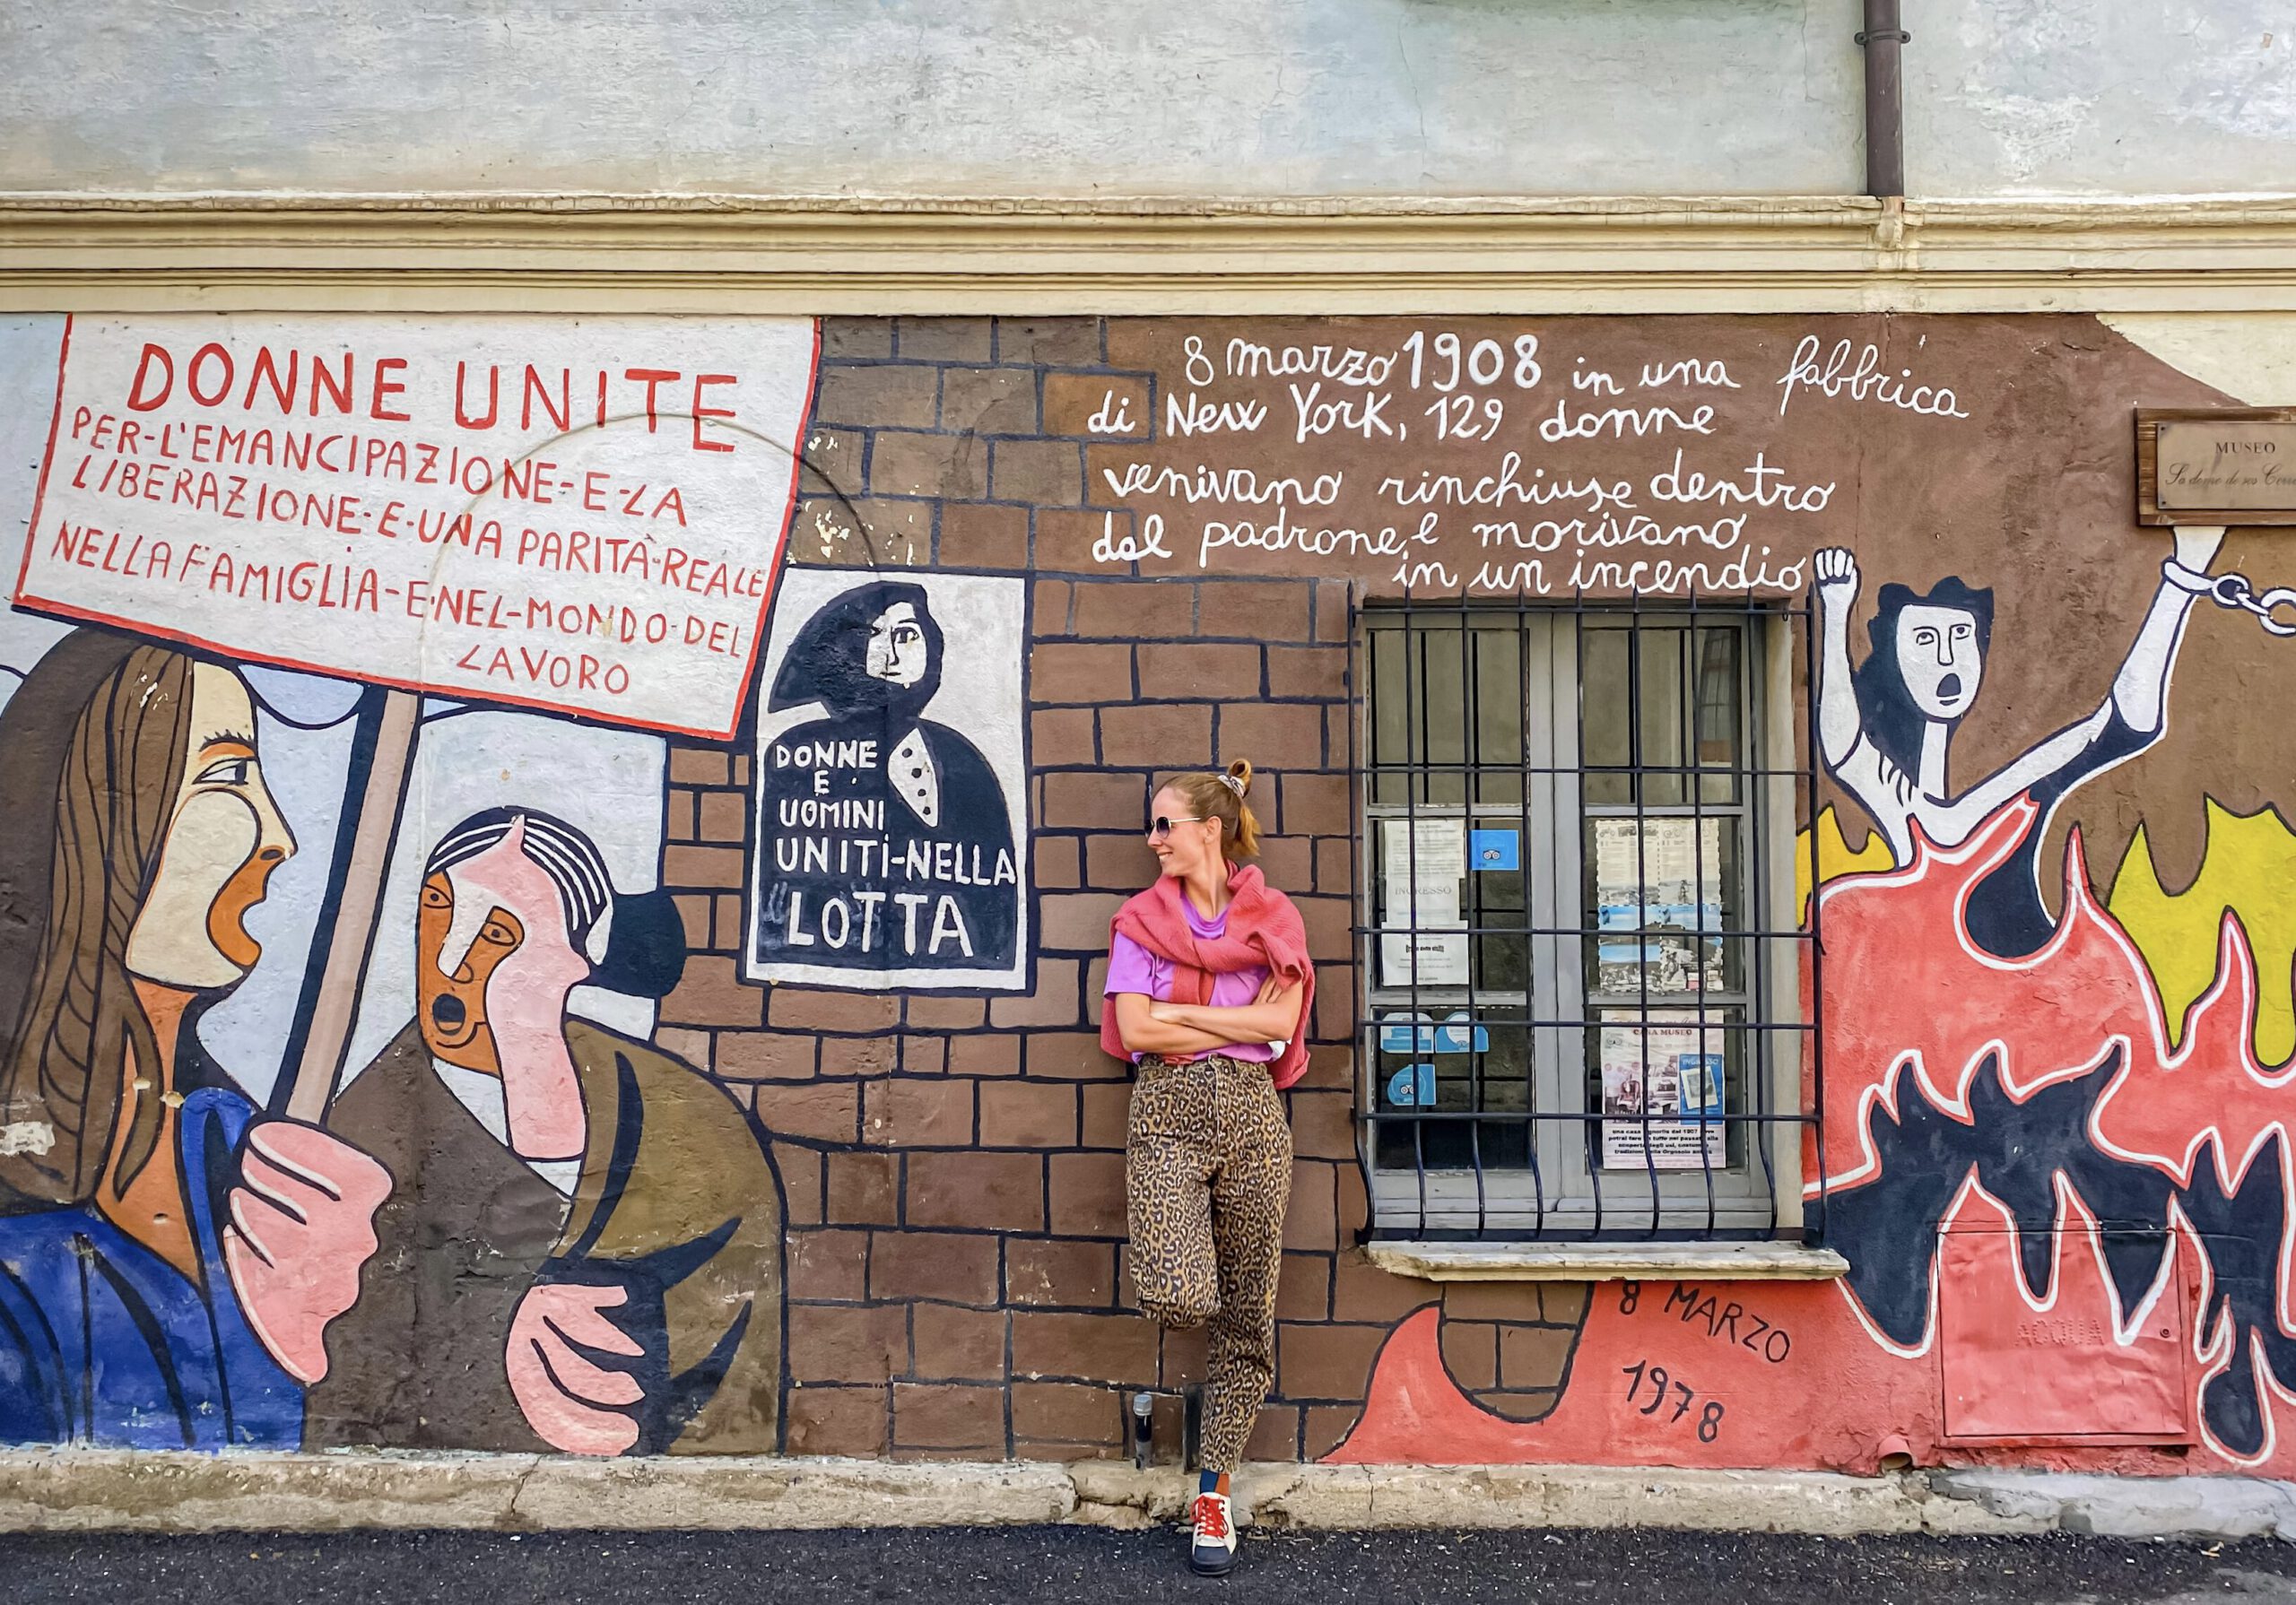 DONNE UNITE
PER-L'EMANCIPAZIONE-E-LA
LIBERAZIONE-E-UNA PARITÀ-REALE
NELLA FAMIGLIA-E-NEL-MONDO-DEL
LAVORO
DONNE
E
UOMINI
UNITI-NELLA
LOTTA
8 marzo 1908 in una fabbrica
di New York, 129 donne
venivano rinchiuse dentro
dal padrone, e morivano
in un incendio
MUSEO
INGRESSO
CASA MUSEO
INGRESSO
8 MARZO
1978
ACQUA